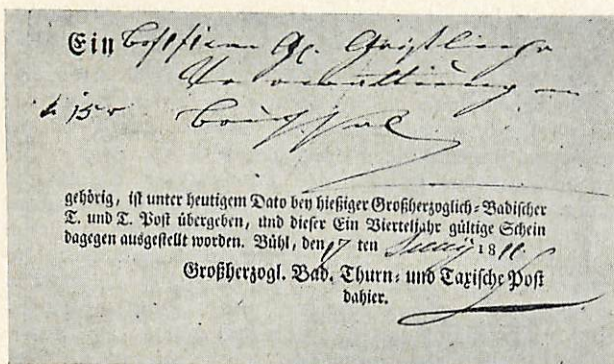 Ein Geistliche
Verwaltung
Bruchsal
gehörig, ist unter heutigem Dato bey hießiger Großherzoglich-Badischer
T. und T. Post übergeben, und dieser Ein Vierteljahr gültige Schein
dagegen ausgestellt worden. Bühl, den 17 ten Juny 18
Großherzogl. Bad. Thurn- und Taxische Post
dahier.